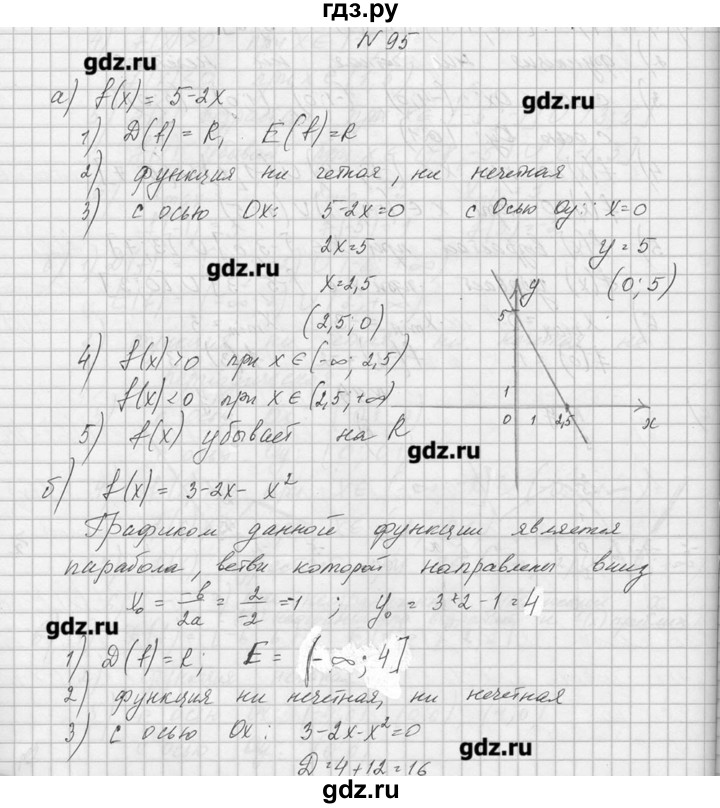 гдз.ру
N 95
gdz.ru
а) f(x) = 5-2x
gdz.ru
1) D(f) = R, E(f)=R
2) функция ни четная, ни нечетная
3) с осью Ox: 5-2x=0 с осью Oy: x=0
2x=5 y=5
gdz.ru
x=2,5 (0; 5)
(2,5; 0)
y
5
4) f(x)>0 при x∈(-∞; 2,5)
f(x)<0 при x∈(2,5; +∞)
1
0 1 2,5 x
5) f(x) убывает на R
gdz.ru
б) f(x) = 3-2x-x²
Графиком данной функции является
парабола, ветви которой направлены вниз
x₀ = -b/2a = 2/-2 = -1 ; y₀ = 3+2-1=4
gdz.ru
1) D(f)=R; E = (-∞; 4]
2) функция ни нечетная, ни нечетная
3) с осью Ox: 3-2x-x²=0
gdz.ru
D=4+12=16
gdz.ru